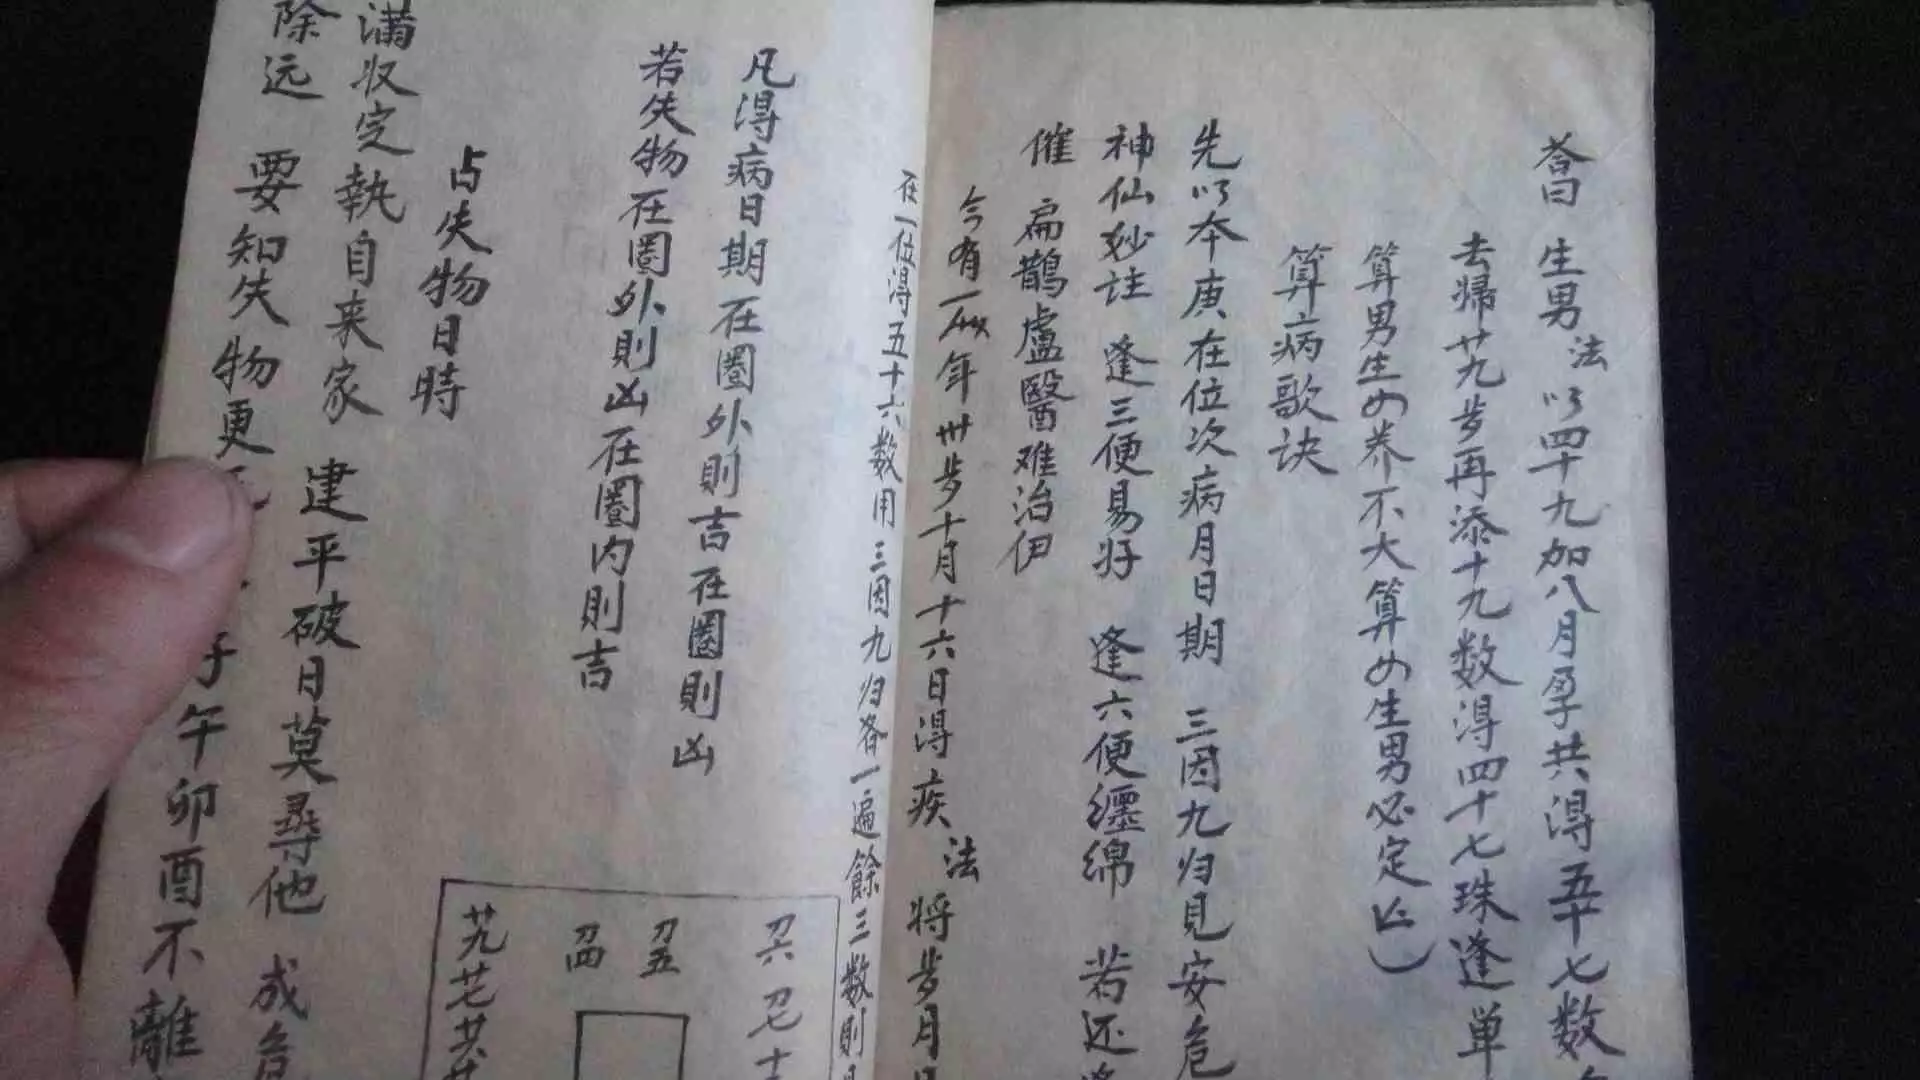 荅曰 生男 法 以四十九加八月孕共得五十七数
去歸廿九步再添十九数得四十七珠逢単
算男生女养不大算女生男必定亡
算病歌诀
先以本庚在位次病月日期 三因九归見安危
神仙妙註 逢三便易好 逢六便纒绵 若还
催 扁鵲盧醫难治伊
今有一 年卅步十月十六日得疾 法 将步月日
在一位得五十六数用三因九归各一遍餘三数則
凡得病日期在圈外則吉在圈則凶
若失物在圈外則凶在圈内則吉
占失物日時
满収定執自来家 建平破日莫尋他 成危
除远 要知失物更 子午卯酉不離
刀六 刀七 十
刀五
刀四
廿九 廿七 廿六